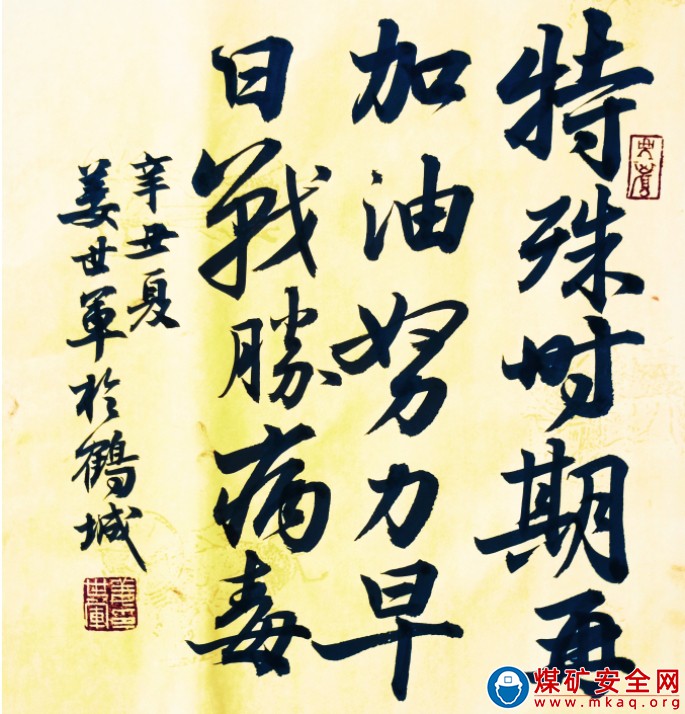 特殊时期再
加油努力早
日戰勝病毒
辛丑夏
姜世军於鶴城
姜世军印
煤矿安全网
www.mkaq.org